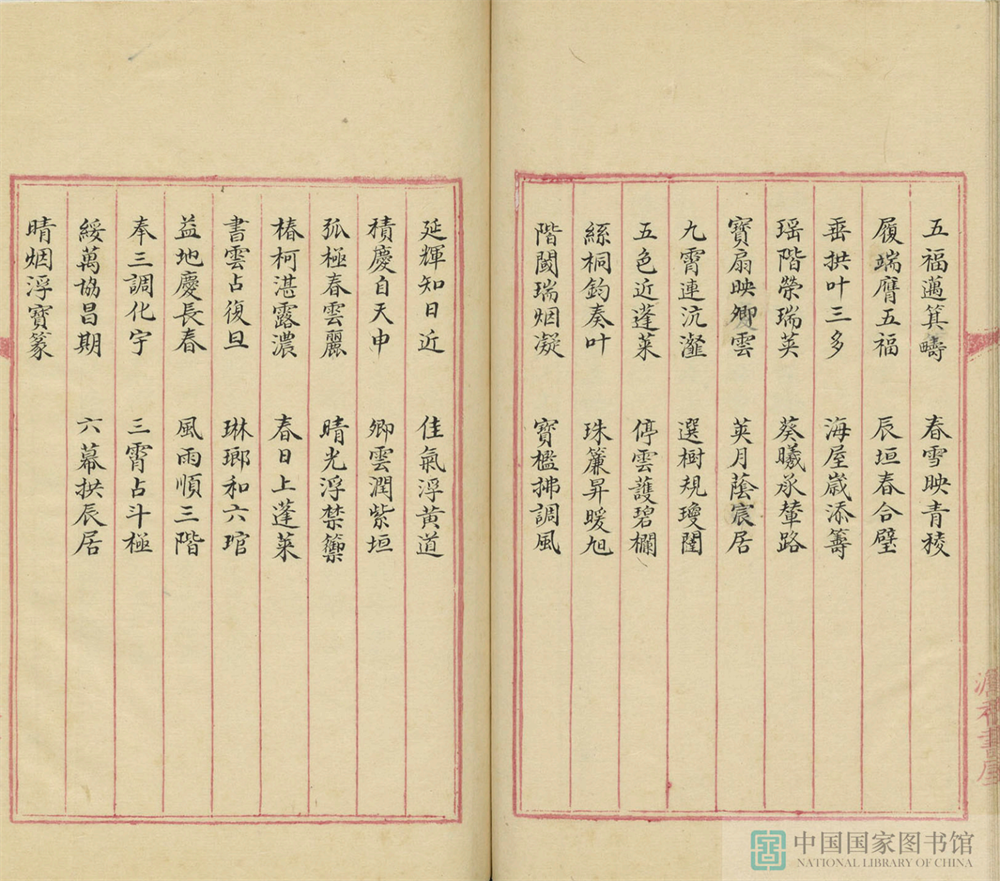 五福邁箕疇 春雪映青稜
履端膺五福 辰垣春合璧
垂拱叶三多 海屋歲添籌
瑶階榮瑞荚 葵曦承輦路
寶扇映卿雲 英月蔭宸居
九霄連沆瀣 選樹規瓊闉
五色近蓬莱 停雲護碧欄
絲桐鈞奏叶 珠簾昇暖旭
階閾瑞烟凝 寶檻拂調風
延輝知日近 佳氣浮黄道
積慶自天申 卿雲潤紫垣
弧極春雲麗 晴光浮禁籞
椿柯湛露濃 春日上蓬莱
書雲占復旦 琳瑯和六琯
益地慶長春 風雨順三階
奉三調化宇 三霄占斗極
綏萬協昌期 六幕拱辰居
晴烟浮寶篆
中国国家图书馆
NATIONAL LIBRARY OF CHINA